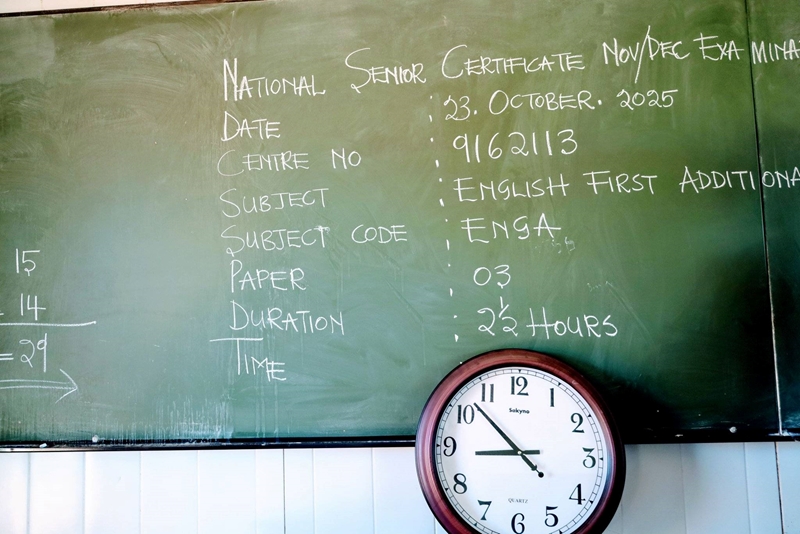 NATIONAL SENIOR CERTIFICATE NOV/DEC EXAMINA
DATE : 23. OCTOBER. 2025
CENTRE NO : 9162113
SUBJECT : ENGLISH FIRST ADDITIONA
SUBJECT CODE : ENGA
PAPER : 03
DURATION : 2½ HOURS
TIME
15
14
= 29
12
1
2
3
4
5
6
7
8
9
10
11
Sakyno
QUARTZ